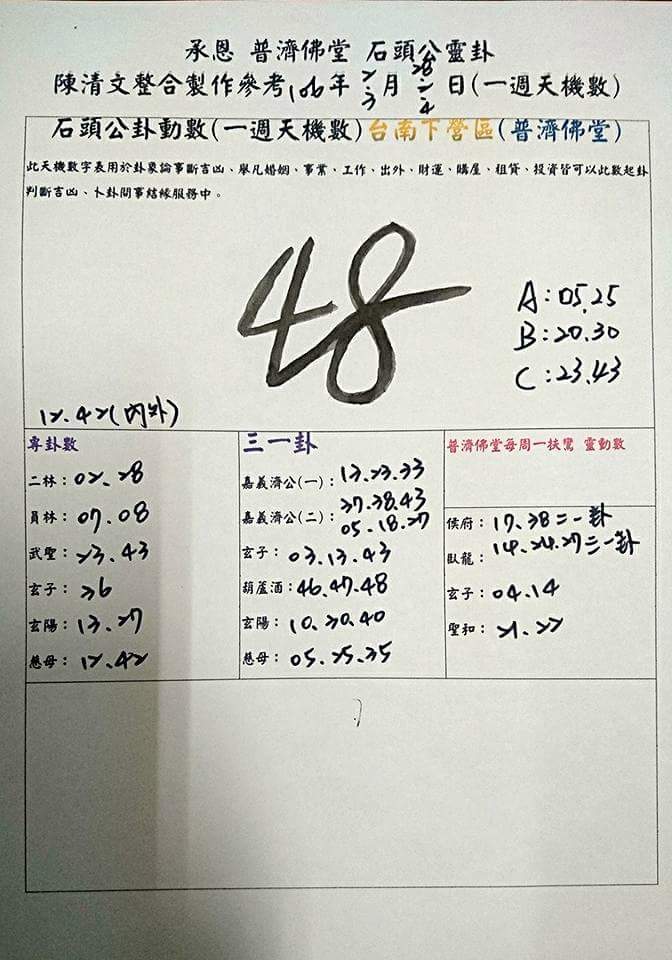 承恩 普濟佛堂 石頭公靈卦
陳清文整合製作參考106年2/3月28/4日(一週天機數)
石頭公卦動數(一週天機數)台南下營區(普濟佛堂)
此天機數字表用於卦象論事斷吉凶、舉凡婚姻、事業、工作、出外、財運、購屋、租賃、投資皆可以此數起卦
判斷吉凶、卜卦問事結緣服務中。
48
A:05.25
B:20.30
C:23.43
12.42(內外)
專卦數
二林:02.28
員林:07.08
武聖:23.43
玄子:26
玄陽:13.27
慈母:12.42
三一卦
嘉義濟公(一):13.23.33
嘉義濟公(二):37.38.43
05.18.27
玄子:03.13.43
葫蘆酒:46.47.48
玄陽:10.30.40
慈母:05.25.35
普濟佛堂每周一扶鸞 靈動數
侯府:17.38二一卦
臥龍:14.24.27三一卦
玄子:04.14
聖和:21.22